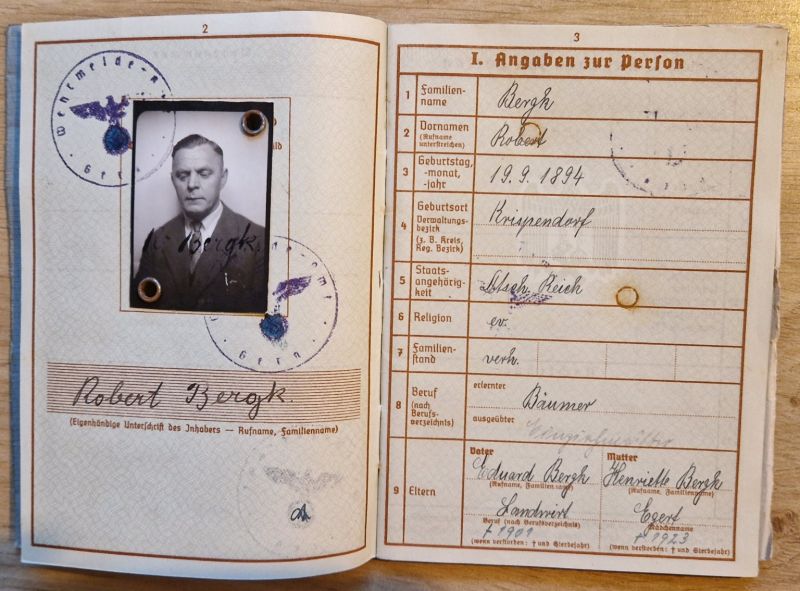 2
Wehrmeldeamt
Gera
R. Bergk.
Wehrmeldeamt
Gera
Robert Bergk.
(Eigenhändige Unterschrift des Inhabers — Rufname, Familienname)
3
I. Angaben zur Person
1 Familienname Bergk
2 Vornamen (Rufname unterstreichen) Robert
3 Geburtstag, -monat, -jahr 19. 9. 1894
4 Geburtsort Verwaltungsbezirk (z. B. Kreis, Reg. Bezirk) Krispendorf
5 Staatsangehörigkeit Dtsch. Reich
6 Religion ev.
7 Familienstand verh.
8 Beruf (nach Berufsverzeichnis) erlernter Bäumer
ausgeübter
9 Eltern
Vater Mutter
Eduard Bergk Henriette Bergk
(Rufname, Familienname) (Rufname, Familienname)
Landwirt Egert
Beruf (nach Berufsverzeichnis) Mädchenname
† 1901 † 1923
(wenn verstorben: † und Sterbejahr) (wenn verstorben: † und Sterbejahr)